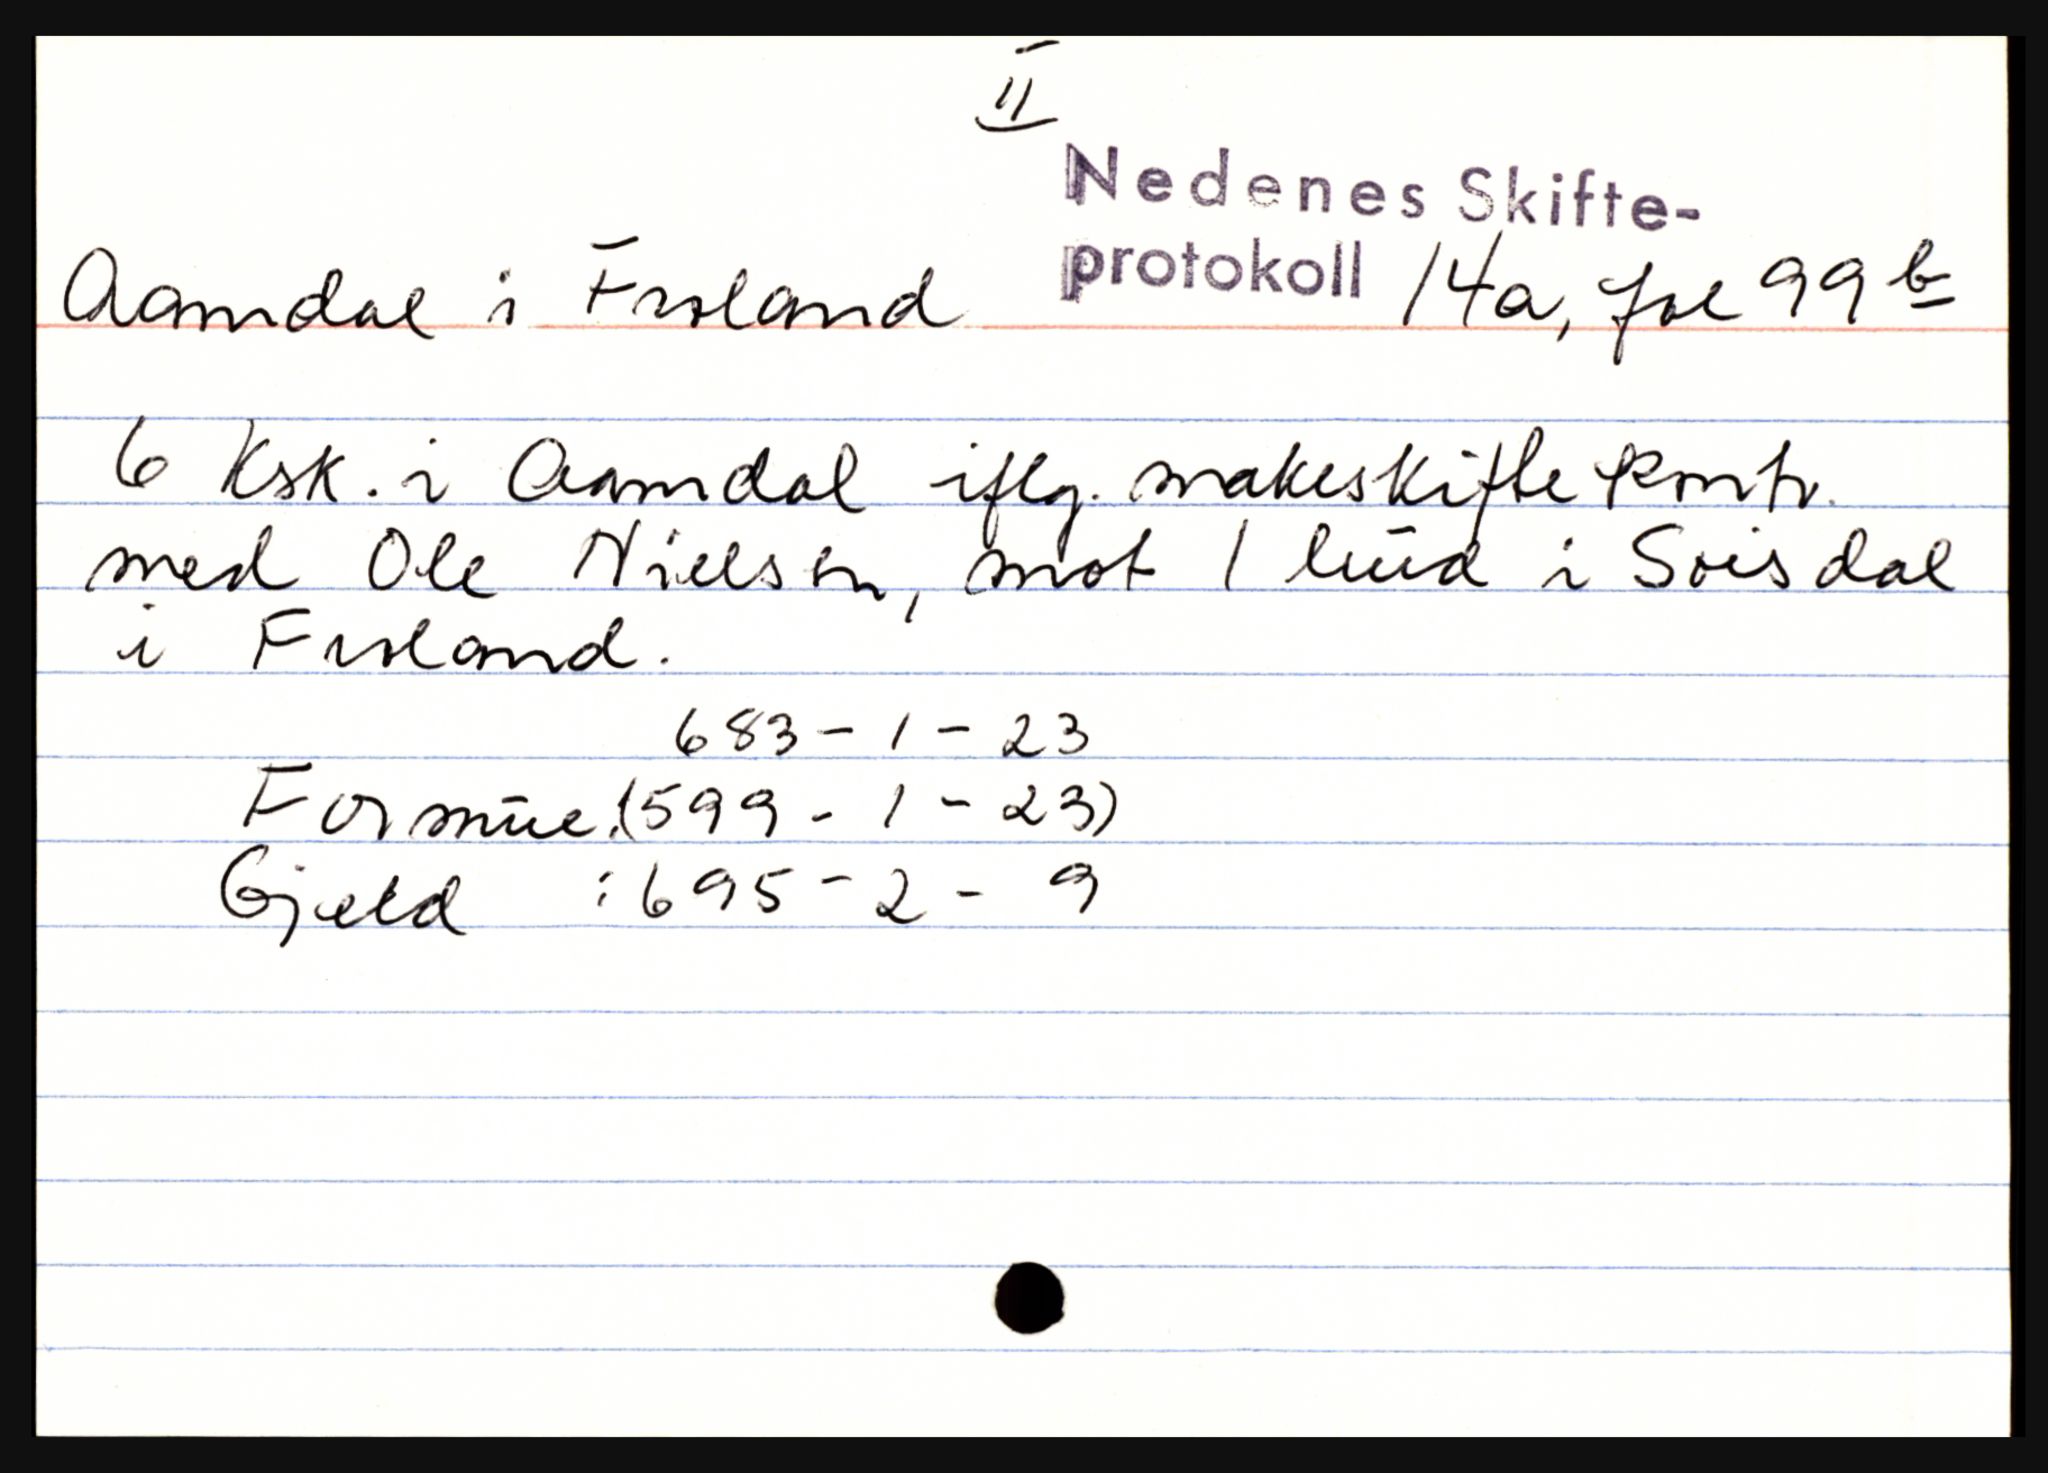 II
Nedenes Skifte-
protokoll 14a, fol 99b
Aamdal i Froland
6 Ksk. i Aamdal iflg. makeskiftekontr.
med Ole Nielsen, mot 1 hud i
i Froland.
683 - 1 - 23
Formue: (599 - 1 - 23)
Gjeld : 695 - 2 - 9